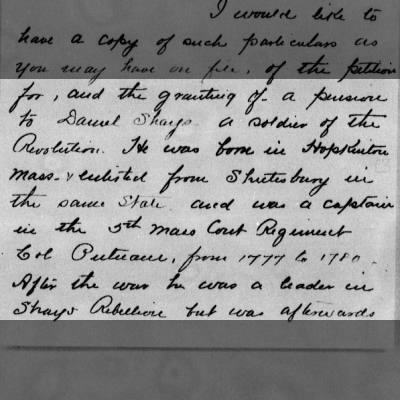 I would like to
have a copy of such particulars as
you may have on file, of the petition
for, and the granting of a pension
to Daniel Shays a soldier of the
Revolution. He was born in Hopkinton
Mass. & enlisted from Shutesbury in
the same State and was a captain
in the 5th Mass Cont Regiment
Col Putnam, from 1777 to 1780.
After the war he was a leader in
Shays Rebellion but was afterwards